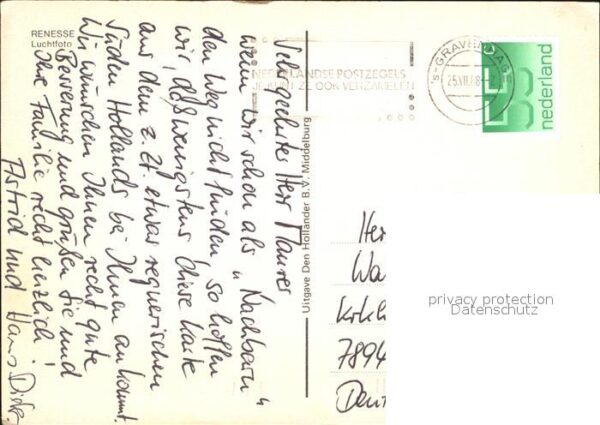 RENESSE
Luchtfoto
Sehr geehrter Herr Maurer
wenn wir schon als „Nachbarn"
den Weg nicht finden, so hoffen
wir, daß wenigstens diese Karte
aus dem z. Zt. etwas regnerischen
Süden Hollands bei Ihnen ankommt.
Wir wünschen Ihnen recht gute
Besserung und grüßen Sie und
Ihre Familie recht herzlich!
Astrid und Hans
Uitgave Den Hollander B.V. Middelburg
NEDERLANDSE POSTZEGELS
JE KUNT ZE OOK VERZAMELEN
's-GRAVENHAGE
nederland
Her
Wa
7894
Deut
privacy protection
Datenschutz